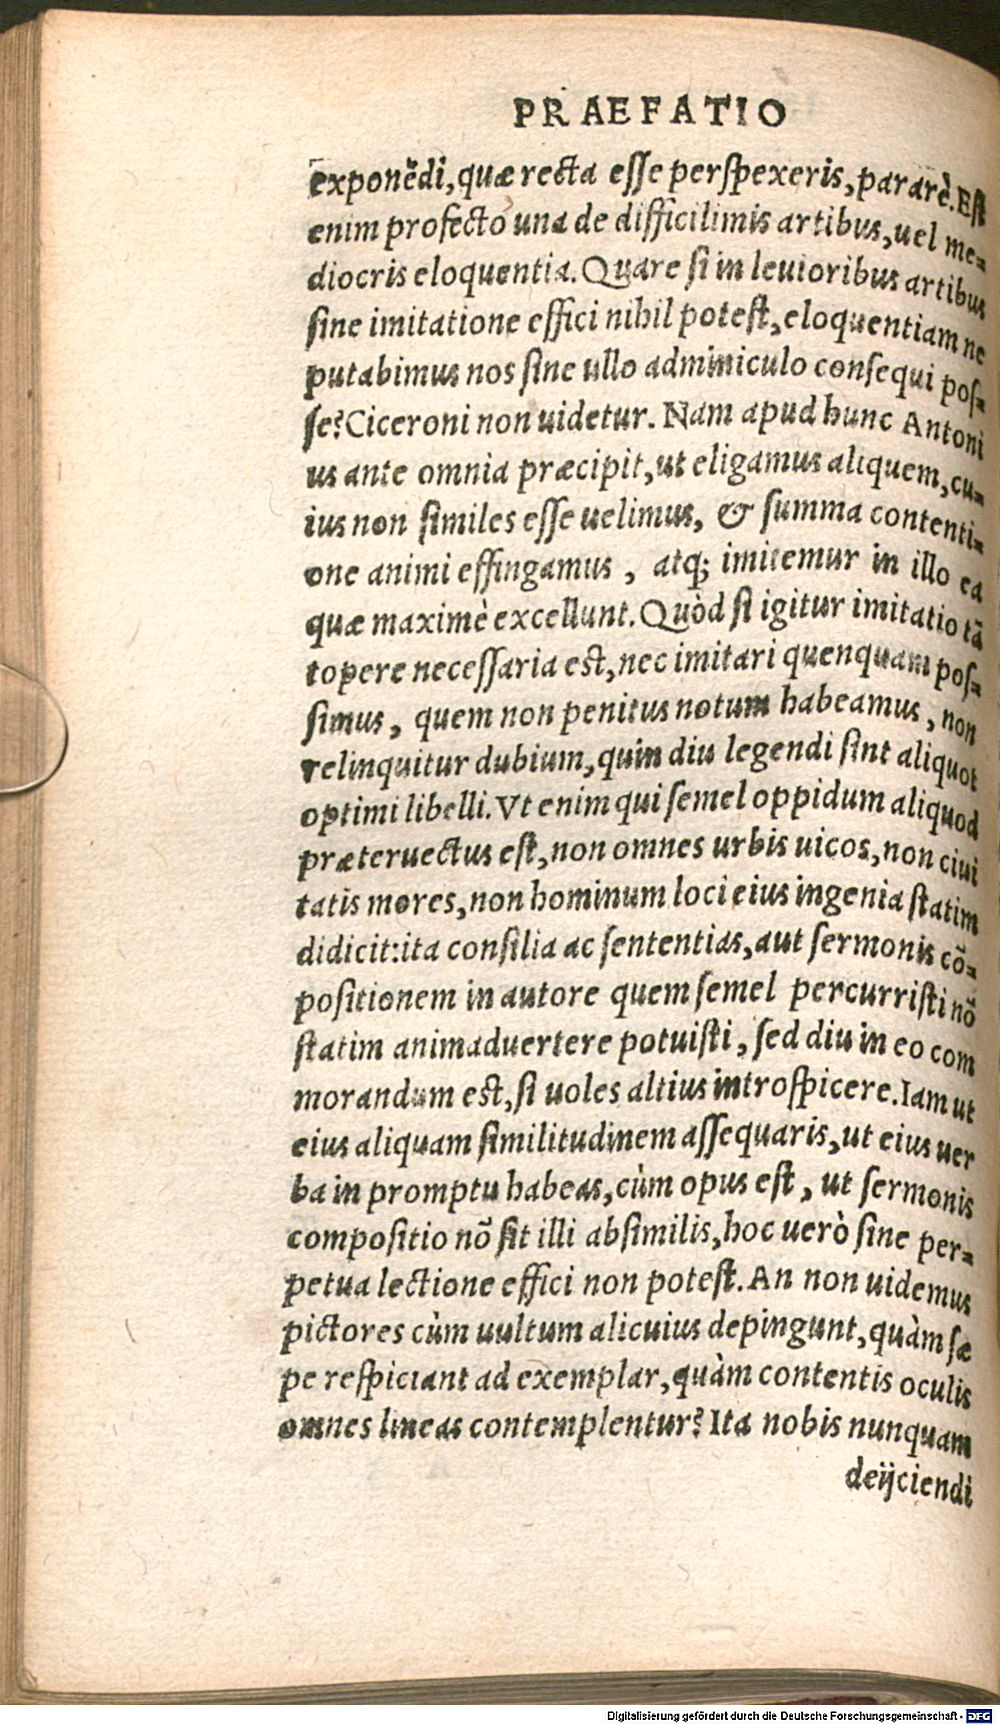 PRAEFATIO
exponẽdi, quæ recta esse perspexeris, pararè. Est
enim profecto una de difficilimis artibus, uel me-
diocris eloquentia. Quare si in leuioribus artibus
sine imitatione effici nihil potest, eloquentiam ne
putabimus nos sine ullo adminiculo consequi pos-
se? Ciceroni non uidetur. Nam apud hunc Antoni
us ante omnia præcipit, ut eligamus aliquem, cu-
ius non similes esse uelimus, & summa contenti-
one animi effingamus, atq; imitemur in illo ea
quæ maximè excellunt. Quòd si igitur imitatio tã
topere necessaria est, nec imitari quenquam pos-
simus, quem non penitus notum habeamus, non
relinquitur dubium, quin diu legendi sint aliquot
optimi libelli. Vt enim qui semel oppidum aliquod
præteruectus est, non omnes urbis uicos, non ciui
tatis mores, non hominum loci eius ingenia statim
didicit: ita consilia ac sententias, aut sermonis cõ-
positionem in autore quem semel percurristi nõ
statim animaduertere potuisti, sed diu in eo com
morandum est, si uoles altius introspicere. Iam ut
eius aliquam similitudinem assequaris, ut eius uer
ba in promptu habeas, cùm opus est, ut sermonis
compositio nõ sit illi absimilis, hoc uerò sine per-
petua lectione effici non potest. An non uidemus
pictores cùm uultum alicuius depingunt, quàm sæ
pe respiciant ad exemplar, quàm contentis oculis
omnes lineas contemplentur? Ita nobis nunquam
deijciendi
Digitalisierung gefördert durch die Deutsche Forschungsgemeinschaft - DFG